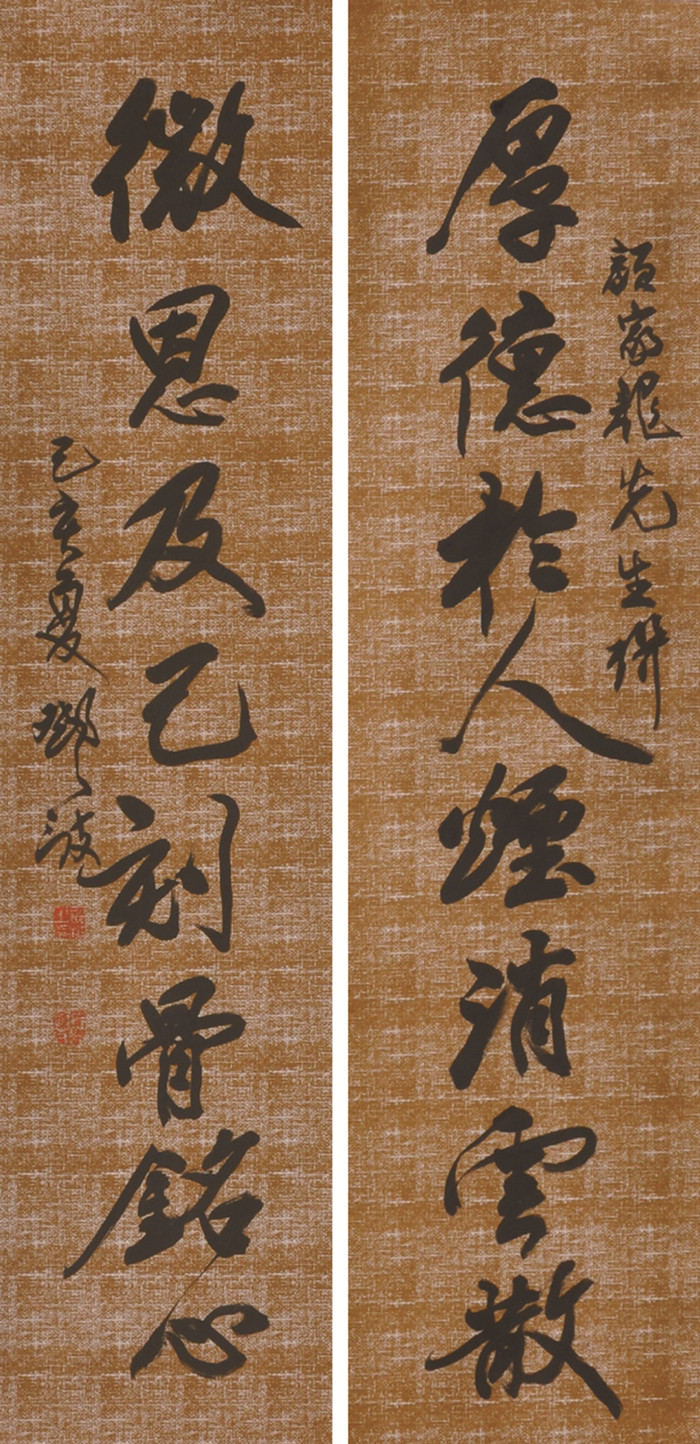 顏家龍先生聯
厚德於人煙消雲散
微恩及己刻骨銘心
己亥夏 鄧波